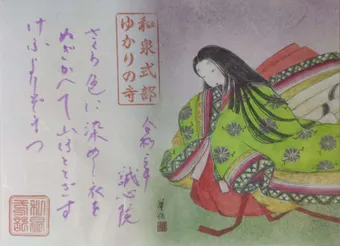 和泉式部
ゆかりの寺
誠心院
さくら色に染めし衣を
ぬぎかへて山ほととぎす
けふよりぞまつ